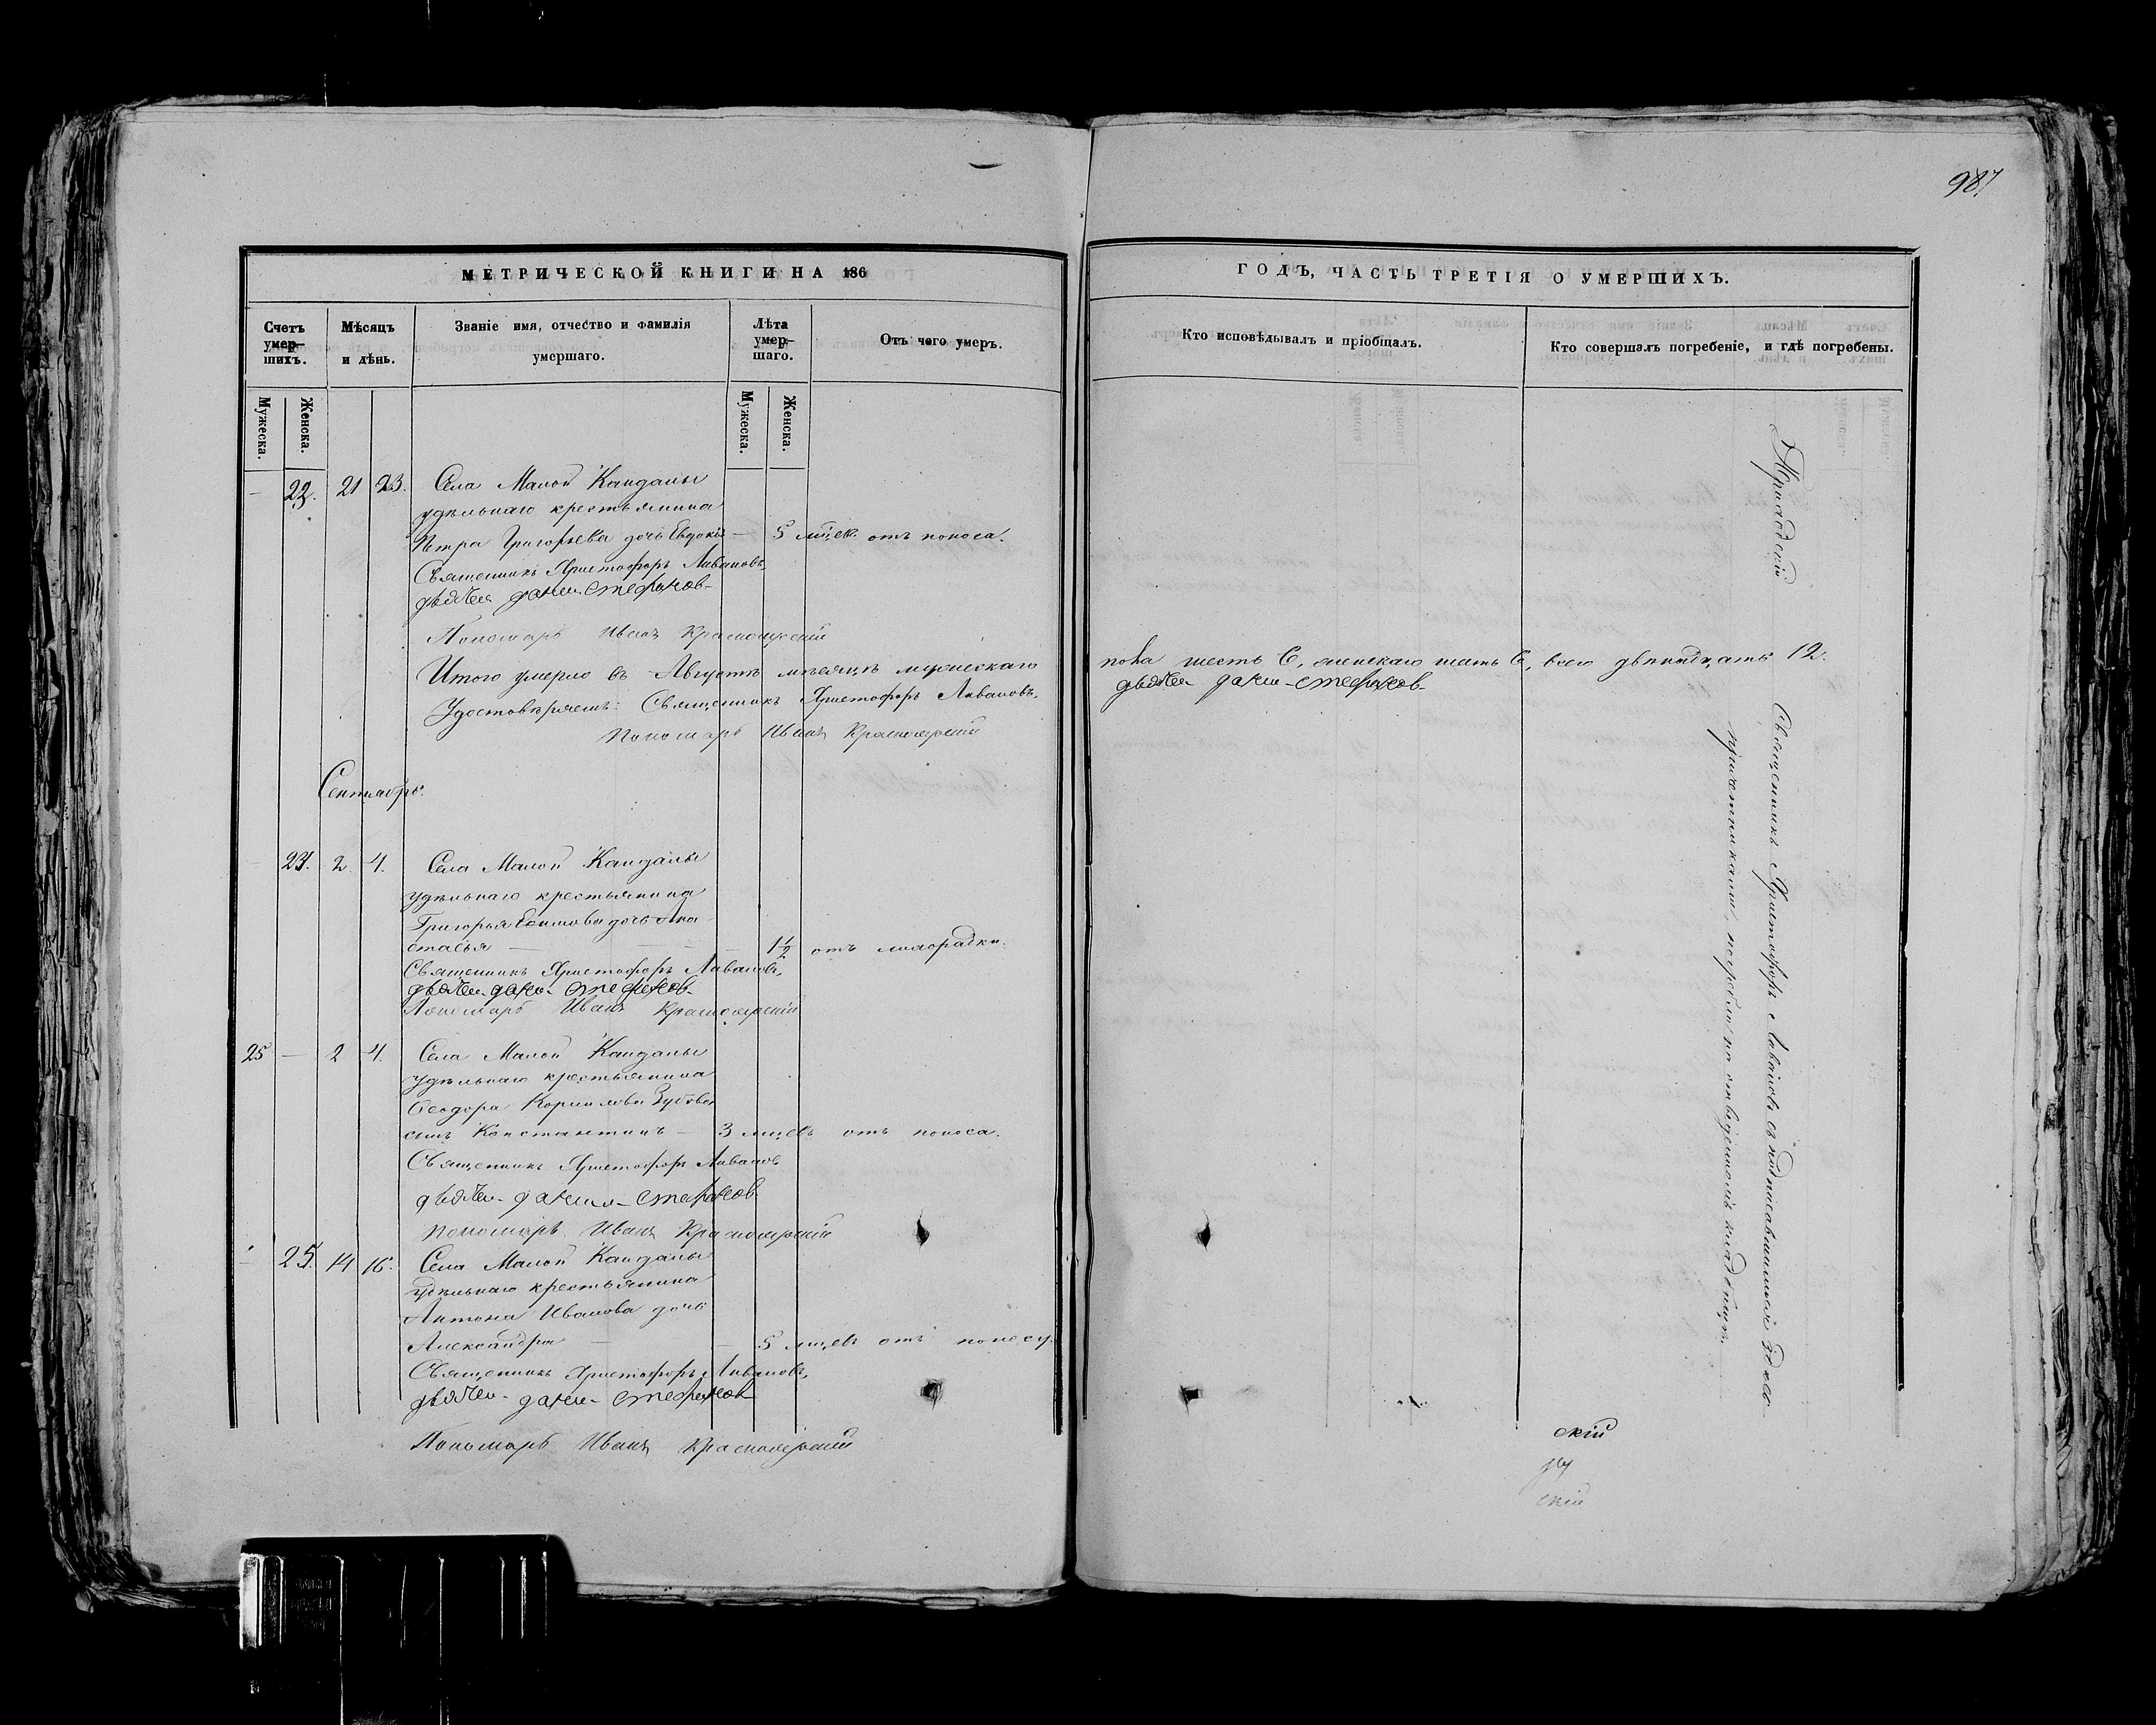 987
МЕТРИЧЕСКОЙ КНИГИ НА 186
Счетъ умер-шихъ.
Мѣсяцъ и дѣнь.
Званіе имя, отчество и фамилія умершаго.
Лѣта умер-шаго.
Отъ чего умеръ.
Мужеска.
Женска.
Мужеска.
Женска.
22. 21 23. Села Малой Кандалы
удѣльнаго крестьянина
Петра Григорьева дочь Евдокія — 5 мѣсец. отъ поноса.
Священникъ Христофоръ Ливановъ,
дьячекъ Данил Стефанов
Пономарь Иванъ Красноярскій
Итого умерло въ Августѣ мѣсяцѣ мужескаго
Удостовѣряемъ: Священникъ Христофоръ Ливановъ,
Пономарь Иванъ Красноярскій
Сентябрь.
23. 2. 4. Села Малой Кандалы
удѣльнаго крестьянина
Григорья дочь Ана-
стасья — 1 1/2 отъ лихорадки.
Священникъ Христофоръ Ливановъ,
дьячек Данил Стефанов
Пономарь Иванъ Красноярскій
25 — 2 4. Села Малой Кандалы
удѣльнаго крестьянина
Ѳеодора Корнилова Зубова
сынъ Константинъ — 3 мѣсець отъ поноса.
Священникъ Христофоръ Ливановъ
дьячек Данил Стефанов
Пономарь Иванъ Красноярскій
— 25. 14 16. Села Малой Кандалы
удѣльнаго крестьянина
Антона Иванова дочь
Александра — 5 мѣсець отъ поносу.
Священникъ Христофоръ Ливановъ,
дьячек Данил Стефанов
Пономарь Иванъ Красноярскій
ГОДЪ, ЧАСТЬ ТРЕТІЯ О УМЕРШИХЪ.
Кто исповѣдывалъ и пріобщалъ.
Кто совершалъ погребеніе, и гдѣ погребены.
пола шесть 6, женскаго шесть 6, всего двѣнадцать 12.
дьячек Данил Стефанов
Приходскій
Священникъ Христофоръ Ливановъ съ подписавшимися здѣсь
причетниками, погребены на отведенномъ кладбищѣ.
скій
скій